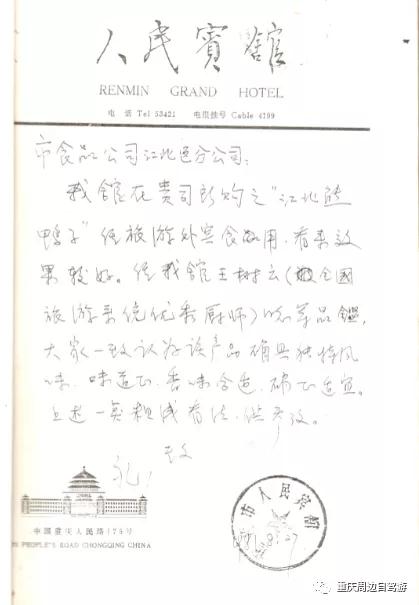 人民賓館
RENMIN GRAND HOTEL
电话 Tel 53421 电报挂号 Cable 4799
市食品公司江北区分公司:
我馆在贵司所购之"江北
鸭子"经旅游外宾食用,看来效
果较好。经我馆王树云(全国
旅游系统优秀厨师)等品鉴,
大家一致认为该产品确具独特风
味,味道正,香味合适,适宜。
上述一点粗浅看法,供参考。
致
礼!
中国重庆人民路175号
PEOPLE'S ROAD CHONGQING CHINA
市人民宾馆
重庆周边自驾游